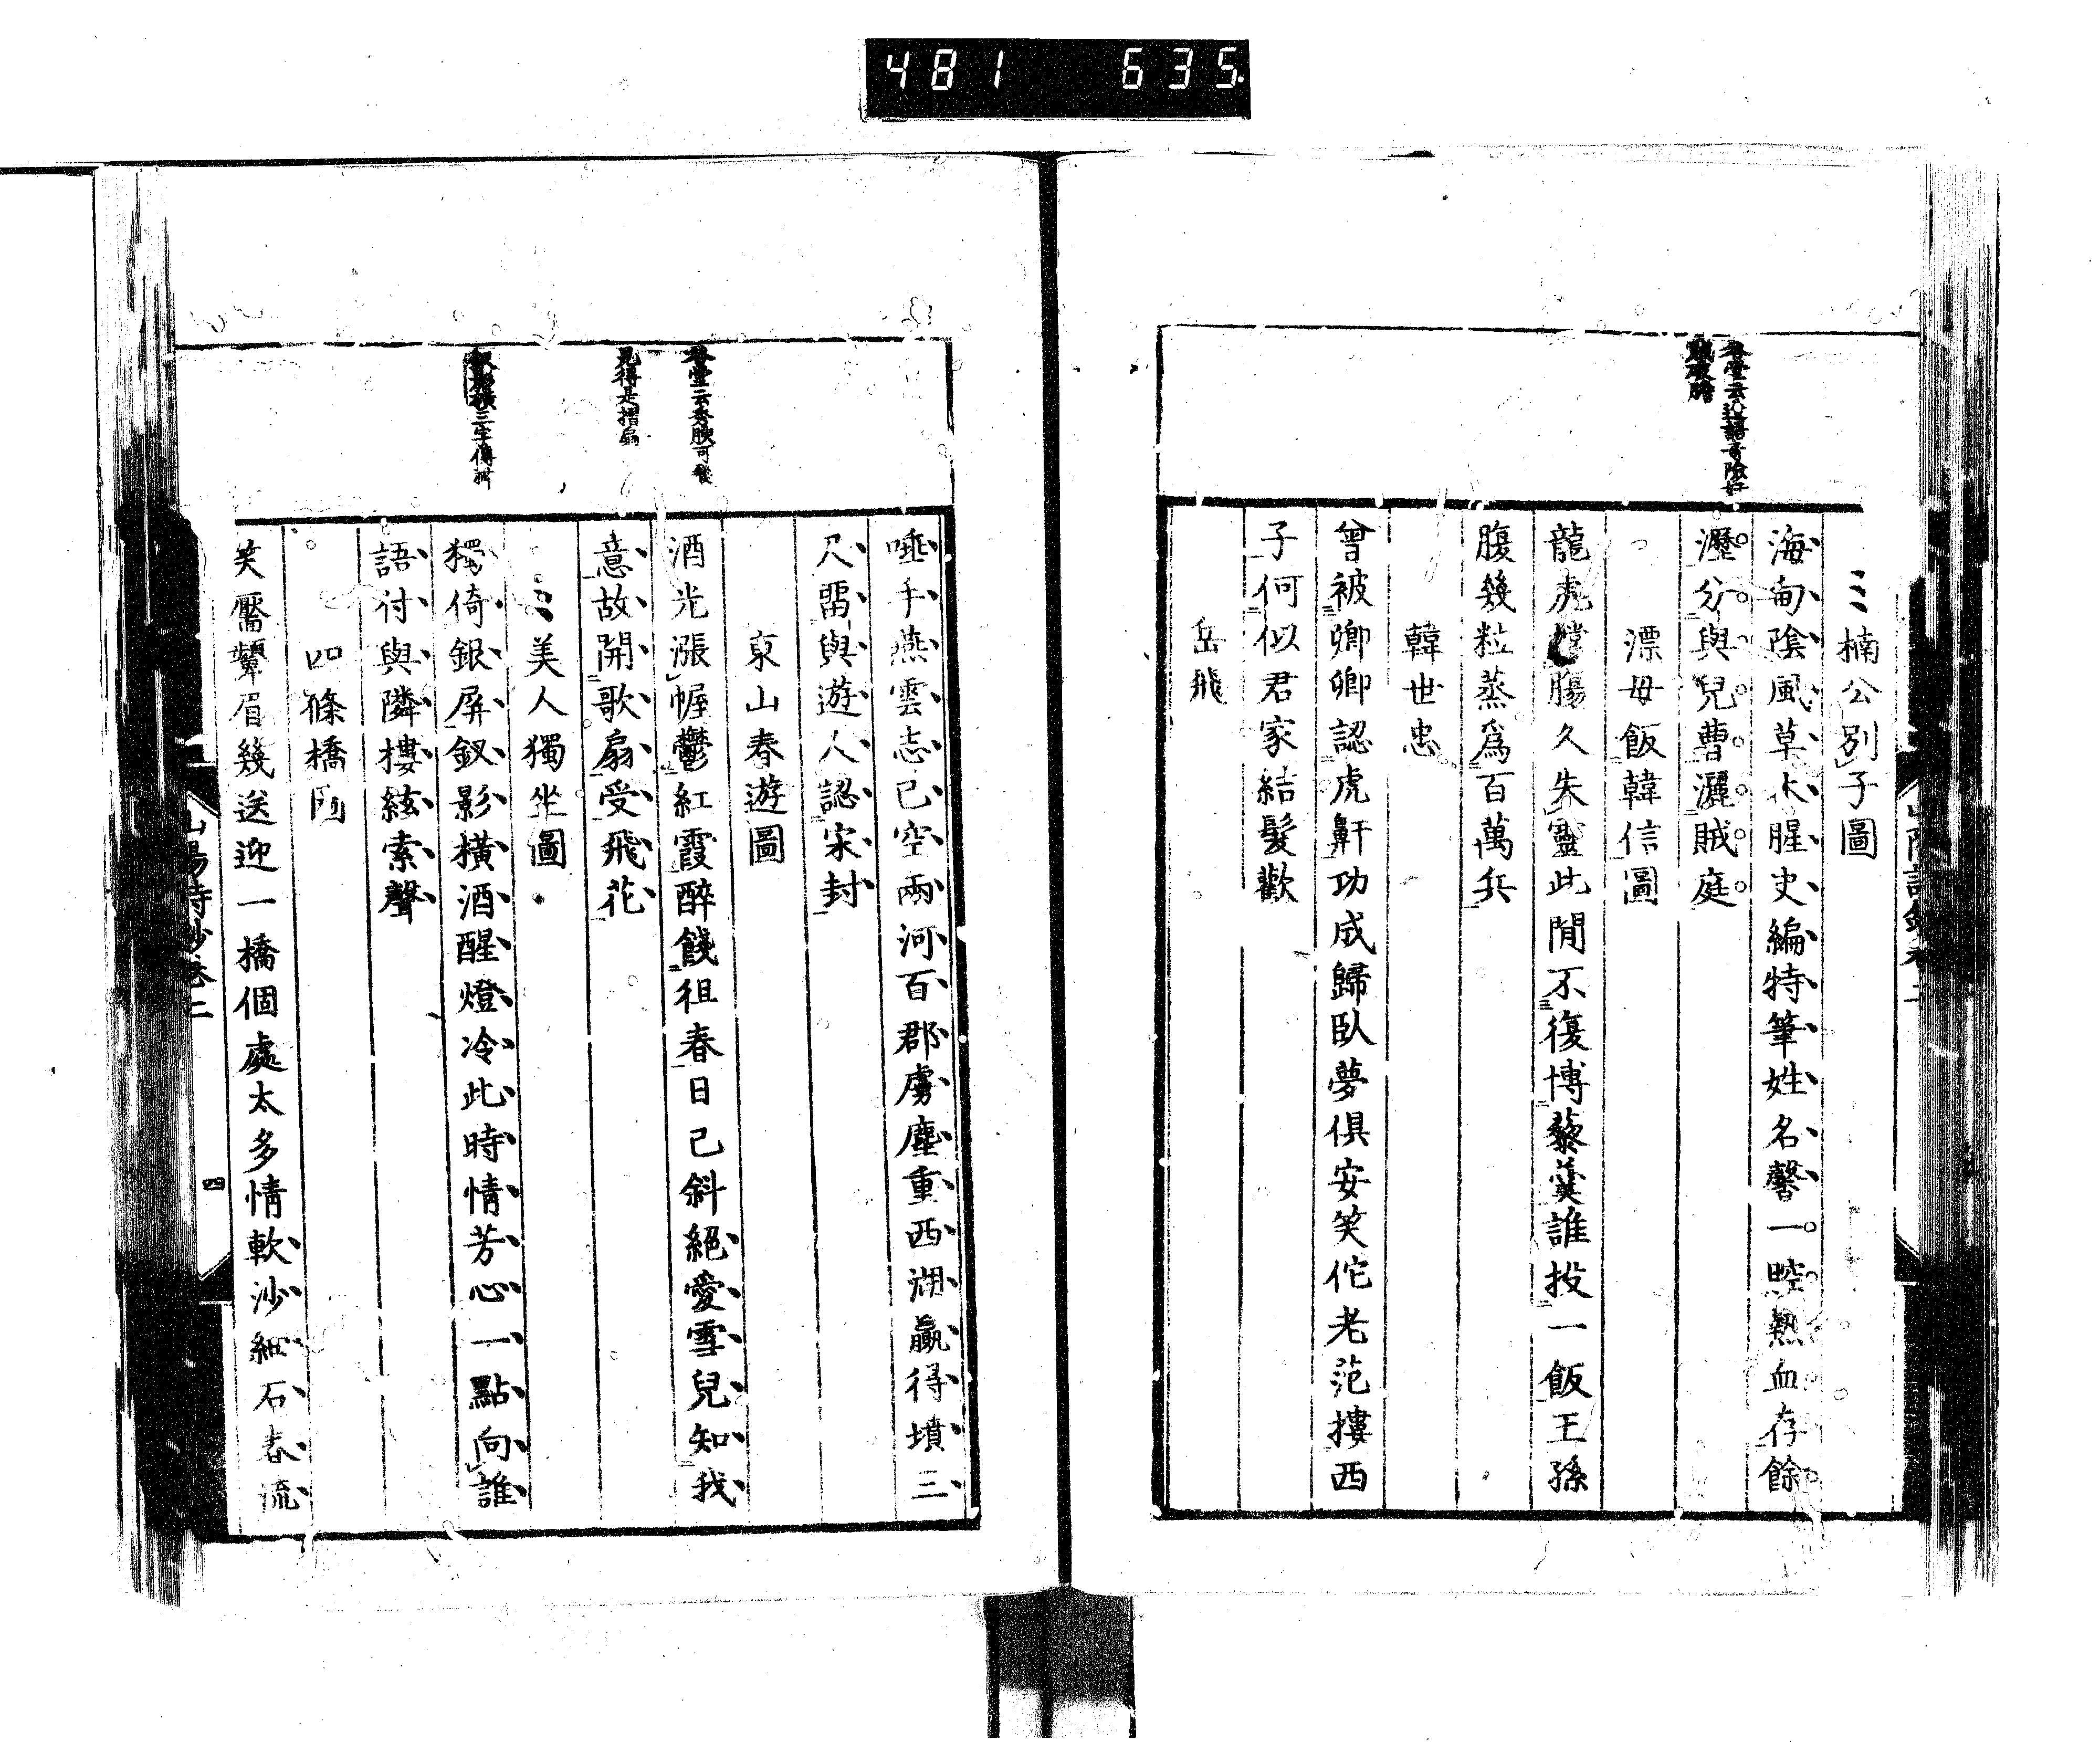 481 635
楠公別子圖
海甸陰風草木腥史編特筆姓名馨一腔熱血存餘
瀝分與兒曹灑賊庭
漂母飯韓信圖
龍虎 腸久失靈此閒不復博藜羹誰投一飯王孫
腹幾粒蒸爲百萬兵
韓世忠
曾被卿卿認虎鼾功成歸臥夢俱安笑佗老范摟西
子何似君家結髮歡
岳飛
唾手燕雲志已空兩河百郡虜塵重西湖贏得墳三
尺留與遊人認宋封
東山春遊圖
酒光漲幄鬱紅霞醉餞徂春日已斜絕愛雪兒知我
意故開歌扇受飛花
見得是摺扇
美人獨坐圖
獨倚銀屏釵影橫酒醒燈冷此時情芳心一點向誰
語付與隣樓絃索聲
四條橋
笑靨顰眉幾送迎一橋個處太多情軟沙細石春流
山陽詩鈔卷二
四